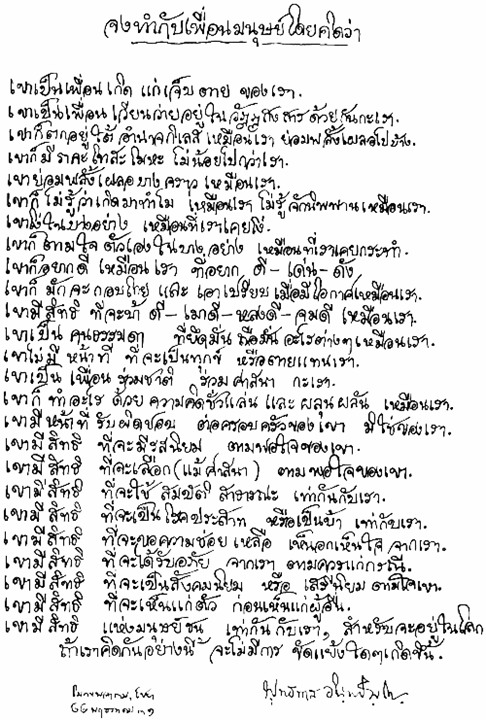 จงทำกับเพื่อนมนุษย์โดยคิดว่า
เขาเป็นเพื่อนเกิด แก่ เจ็บ ตาย ของเรา.
เขาเป็นเพื่อน เวียนว่ายอยู่ใน วัฏฏสงสาร ด้วยกันกะเรา.
เขาก็ตกอยู่ใต้ อำนาจกิเลส เหมือนเรา ย่อมพลั้งเผลอไปบ้าง.
เขาก็มี ราคะ โทสะ โมหะ ไม่น้อยไปกว่าเรา.
เขาย่อมพลั้งเผลอบางคราว เหมือนเรา.
เขาก็ ไม่รู้ว่าเกิดมาทำไม เหมือนเรา ไม่รู้จักนิพพานเหมือนเรา.
เขาโง่ในบางอย่าง เหมือนที่เราเคยโง่.
เขาก็ ตามใจตัวเองในบางอย่าง เหมือนที่เราเคยกระทำ.
เขาก็อยากดี เหมือนเรา ที่อยาก ดี-เด่น-ดัง.
เขาก็ มักจะกอบโกย และ เอาเปรียบ เมื่อมีโอกาสเหมือนเรา.
เขามีสิทธิ ที่จะบ้าดี-เมาดี-หลงดี-จมดี เหมือนเรา.
เขาเป็น คนธรรมดา ที่ยึดมั่น ถือมั่น อะไรต่างๆ เหมือนเรา.
เขาไม่มี หน้าที่ ที่จะเป็นทุกข์ หรือตายแทนเรา.
เขาเป็น เพื่อน ร่วมชาติ ร่วมศาสนา กะเรา.
เขาก็ ทำอะไร ด้วยความคิดชั่วแล่น และ ผลุนผลัน เหมือนเรา.
เขามีหน้าที่ รับผิดชอบ ต่อครอบครัวของเขา มิใช่ของเรา.
เขามีสิทธิ ที่จะมีรสนิยม ตามพอใจของเขา.
เขามีสิทธิ ที่จะเลือก (แม้ศาสนา) ตามพอใจของเขา.
เขามีสิทธิ ที่จะใช้ สมบัติสาธารณะ เท่ากันกับเรา.
เขามีสิทธิ ที่จะเป็นโรคประสาท หรือเป็นบ้า เท่ากับเรา.
เขามีสิทธิ ที่จะขอความช่วยเหลือ เห็นอกเห็นใจ จากเรา.
เขามีสิทธิ ที่จะได้รับอภัย จากเรา ตามควรแก่กรณี.
เขามีสิทธิ ที่จะเป็นสังคมนิยม หรือ เสรีนิยม ตามใจเขา.
เขามีสิทธิ ที่จะเห็นแก่ตัว ก่อนเห็นแก่ผู้อื่น.
เขามีสิทธิ แห่งมนุษยชน เท่ากันกับเรา, สำหรับจะอยู่ในโลก
ถ้าเราคิดกันอย่างนี้ จะไม่มีการ ขัดแย้งใดๆเกิดขึ้น.
โมกขพลาราม, ไชยา
พุทธทาส อินทปัญโญ